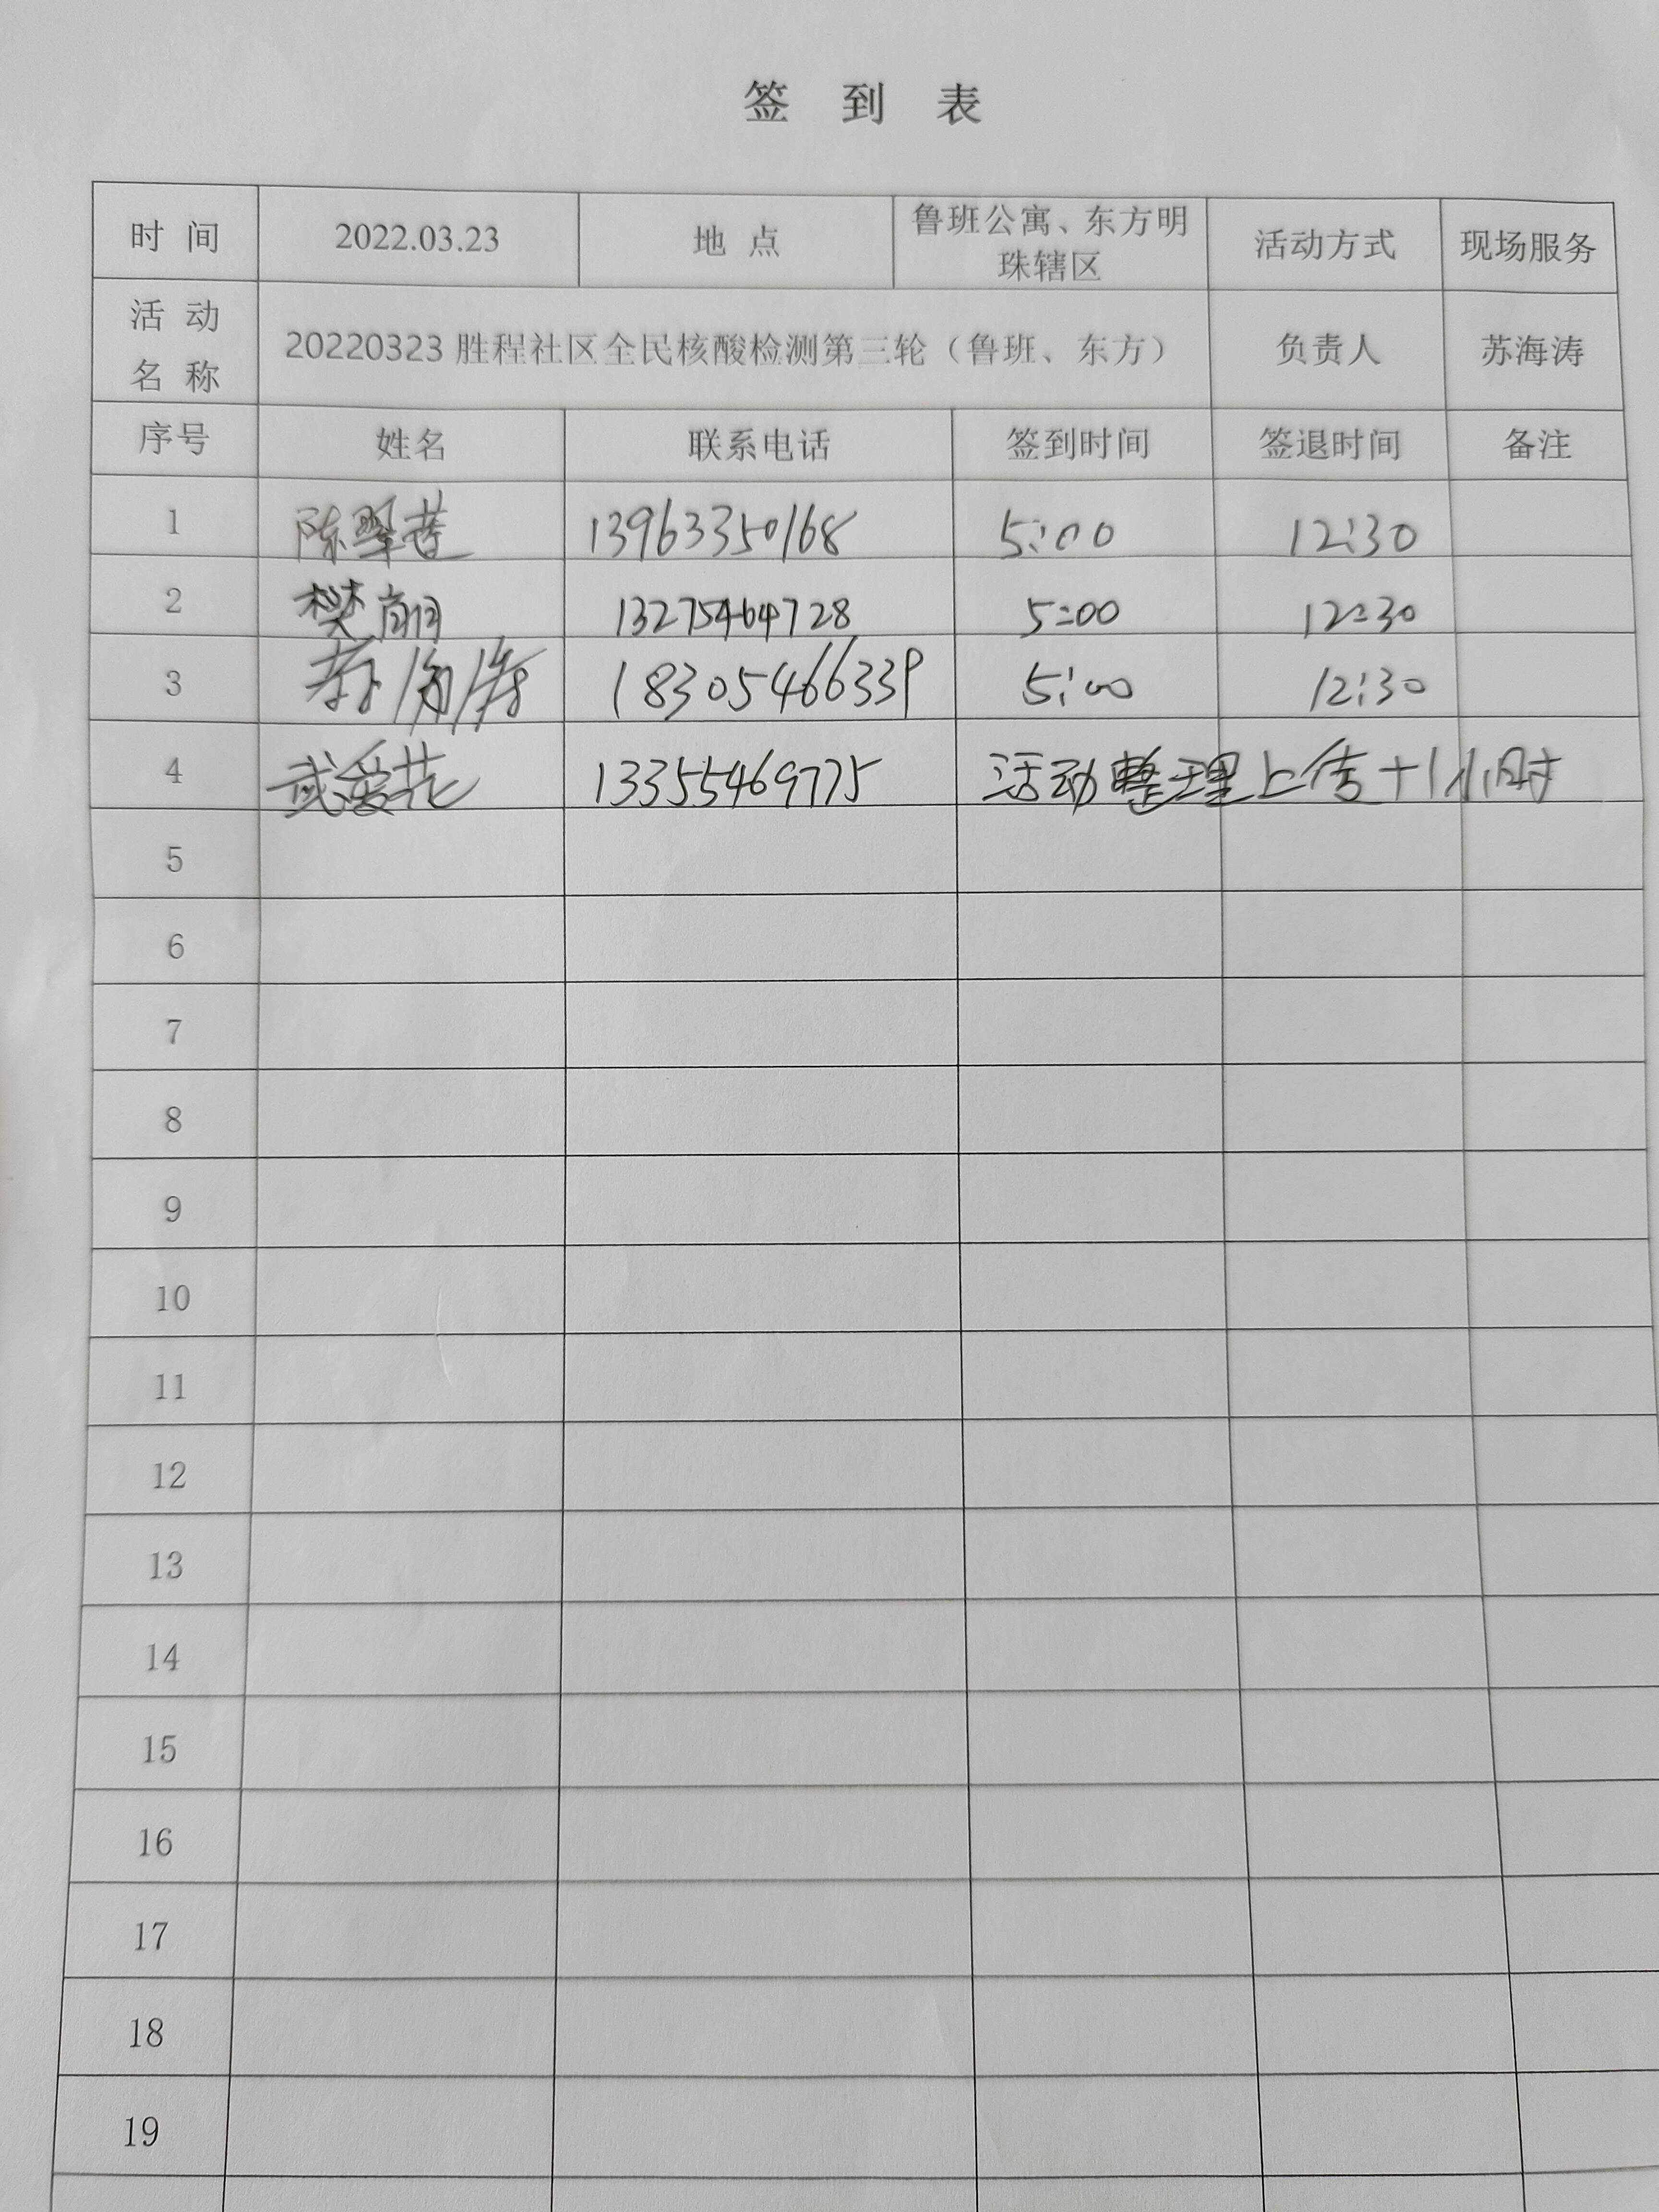 签 到 表
时 间 2022.03.23 地 点 鲁班公寓、东方明珠辖区 活动方式 现场服务
活 动 名 称 20220323 胜程社区全民核酸检测第三轮（鲁班、东方） 负责人 苏海涛
序号 姓名 联系电话 签到时间 签退时间 备注
1 陈翠莲 13963350168 5:00 12:30
2 樊 13275464728 5:00 12:30
3 18305466339 5:00 12:30
4 武爱花 13355469775 活动整理上传+1小时
5
6
7
8
9
10
11
12
13
14
15
16
17
18
19